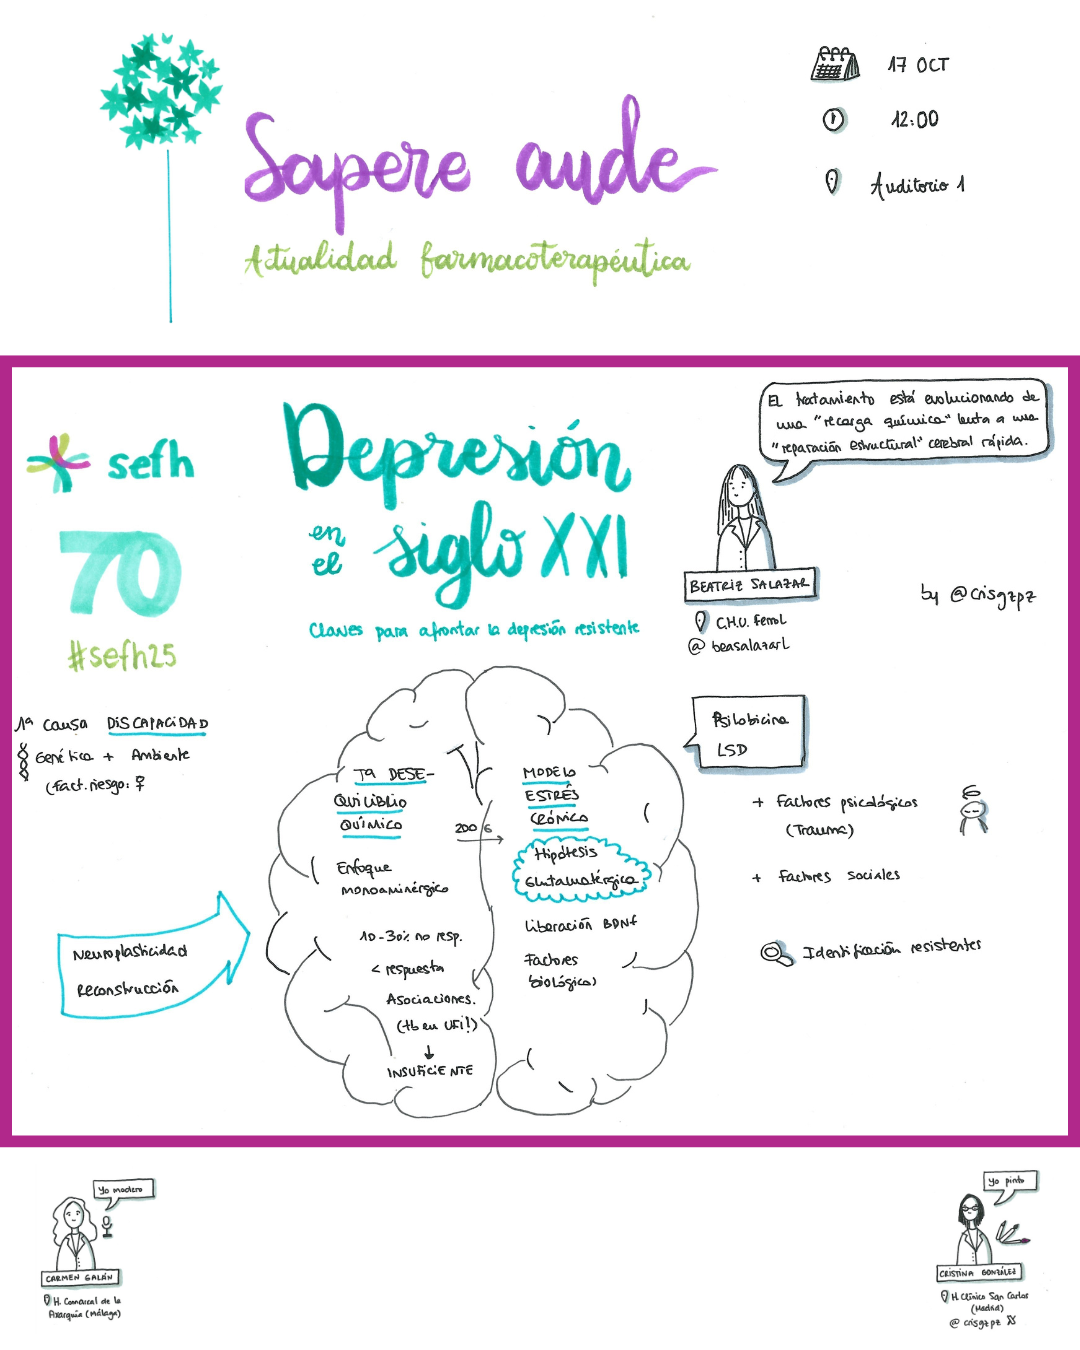 Sapere aude
Actualidad farmacoterapéutica
17 OCT
12:00
Auditorio 1
sefh
70
#sefh25
Depresión
en el siglo XXI
Claves para afrontar la depresión resistente
El tratamiento está evolucionando de
una "recarga química" lenta a una
"reparación estructural" cerebral rápida.
BEATRIZ SALAZAR
C.H.U. Ferrol
@beasalazarl
by @crisgzpz
1ª causa DISCAPACIDAD
Genética + Ambiente
(Fact. riesgo: ♀
Neuroplasticidad
Reconstrucción
Tª DESE-
QUILIBRIO
QUÍMICO
Enfoque
monoaminérgico
10-30% no resp.
< respuesta
Asociaciones.
(tb en UFI!)
↓
INSUFICIENTE
2006
MODELO
ESTRÉS
CRÓNICO
Hipótesis
Glutamatérgica
Liberación BDNF
Factores
biológicos
Psilobicina
LSD
+ Factores psicológicos
(Trauma)
+ Factores sociales
Identificación resistentes
Yo modero
CARMEN GALÁN
H. Comarcal de la
Axarquía (Málaga)
Yo pinto
CRISTINA GONZÁLEZ
H. Clínico San Carlos
(Madrid)
@crisgzpz